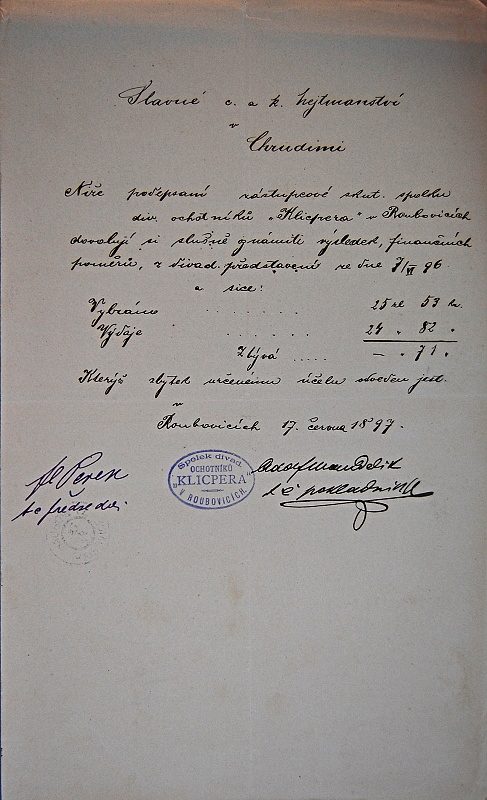 Slavné c. a k. hejtmanství
v
Chrudimi
Níže podepsaní zástupcové skut. spolku
div. ochotníků „Klicpera" v Roubovicích
dovolují si slušně oznámiti výsledek, finančních
poměrů, z divad. představení ze dne 7/VI 96.
a sice:
Vybráno . . . . . . . 25 zl 53 kr.
Výdaje . . . . . . 24 „ 82 „
Zbývá ..... — „ 71 „
Kterýž zbytek určenému účelu odveden jest.
v
Roubovicích 17. června 1897.
Spolek divad.
OCHOTNÍKŮ
„KLICPERA"
V ROUBOVICÍCH.
t. č. předseda
t č pokladník